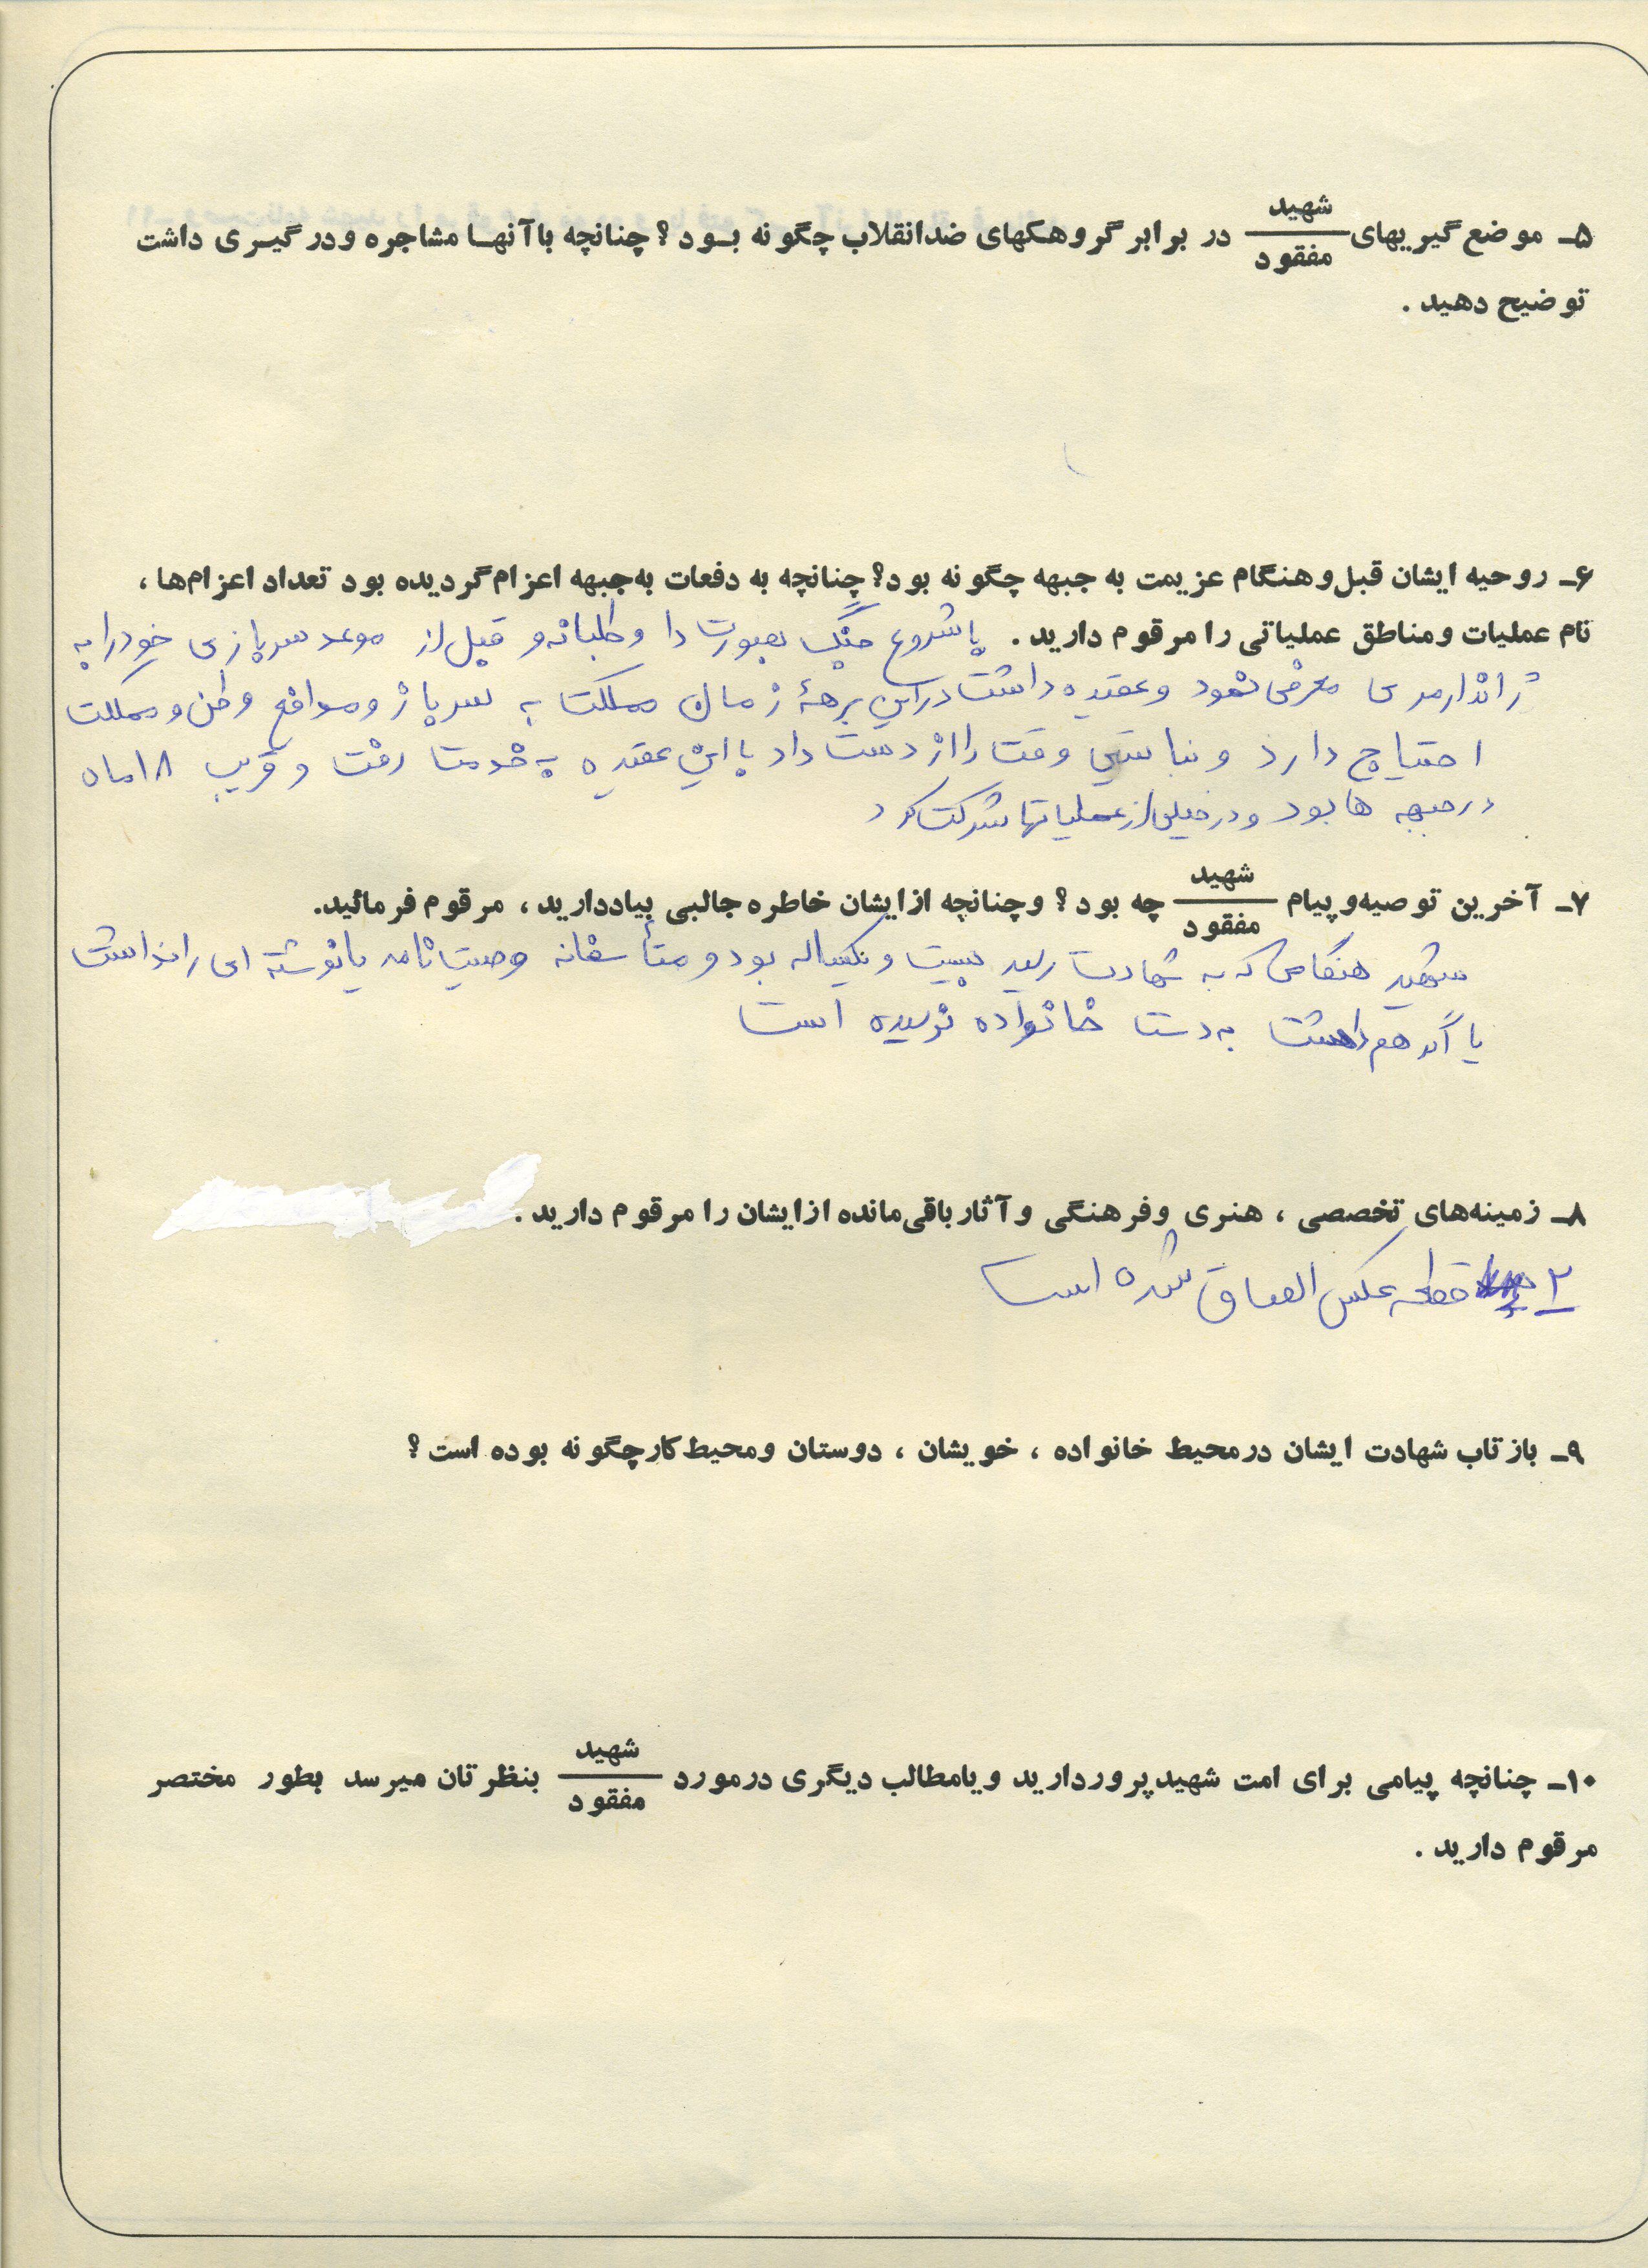 ۵ـ موضع گیریهای شهید/مفقود در برابر گروهکهای ضدانقلاب چگونه بود؟ چنانچه باآنها مشاجره ودرگیری داشت
توضیح دهید.
۶ـ روحیه ایشان قبل وهنگام عزیمت به جبهه چگونه بود؟ چنانچه به دفعات به جبهه اعزام گردیده بود تعداد اعزام‌ها،
نام عملیات ومناطق عملیاتی را مرقوم دارید. با شروع جنگ بصورت داوطلبانه و قبل از موعد سربازی خود را به
ژاندارمری معرفی نمود و عقیده داشت در این برههٔ زمان مملکت به سرباز و مدافع وطن و مملکت
احتیاج دارد و نبایستی وقت را از دست داد با این عقیده به خدمت رفت و قریب ۱۸ ماه
در جبهه ها بود و در خیلی از عملیاتها شرکت کرد
۷ـ آخرین توصیه‌وپیام شهید/مفقود چه بود؟ وچنانچه ازایشان خاطره جالبی بیاددارید، مرقوم فرمائید.
شهید هنگامی که به شهادت رسید بیست و یکساله بود و متأسفانه وصیت نامه یا نوشته ای را نداشت
یا اگر هم داشت به دست خانواده نرسیده است
۸ـ زمینه‌های تخصصی، هنری وفرهنگی وآثارباقی‌مانده ازایشان را مرقوم دارید.
۲ قطعه عکس الصاق شده است
۹ـ بازتاب شهادت ایشان درمحیط خانواده، خویشان، دوستان ومحیط‌کارچگونه بوده است؟
۱۰ـ چنانچه پیامی برای امت شهیدپروردارید ویامطالب دیگری درمورد شهید/مفقود بنظرتان میرسد بطور مختصر
مرقوم دارید.